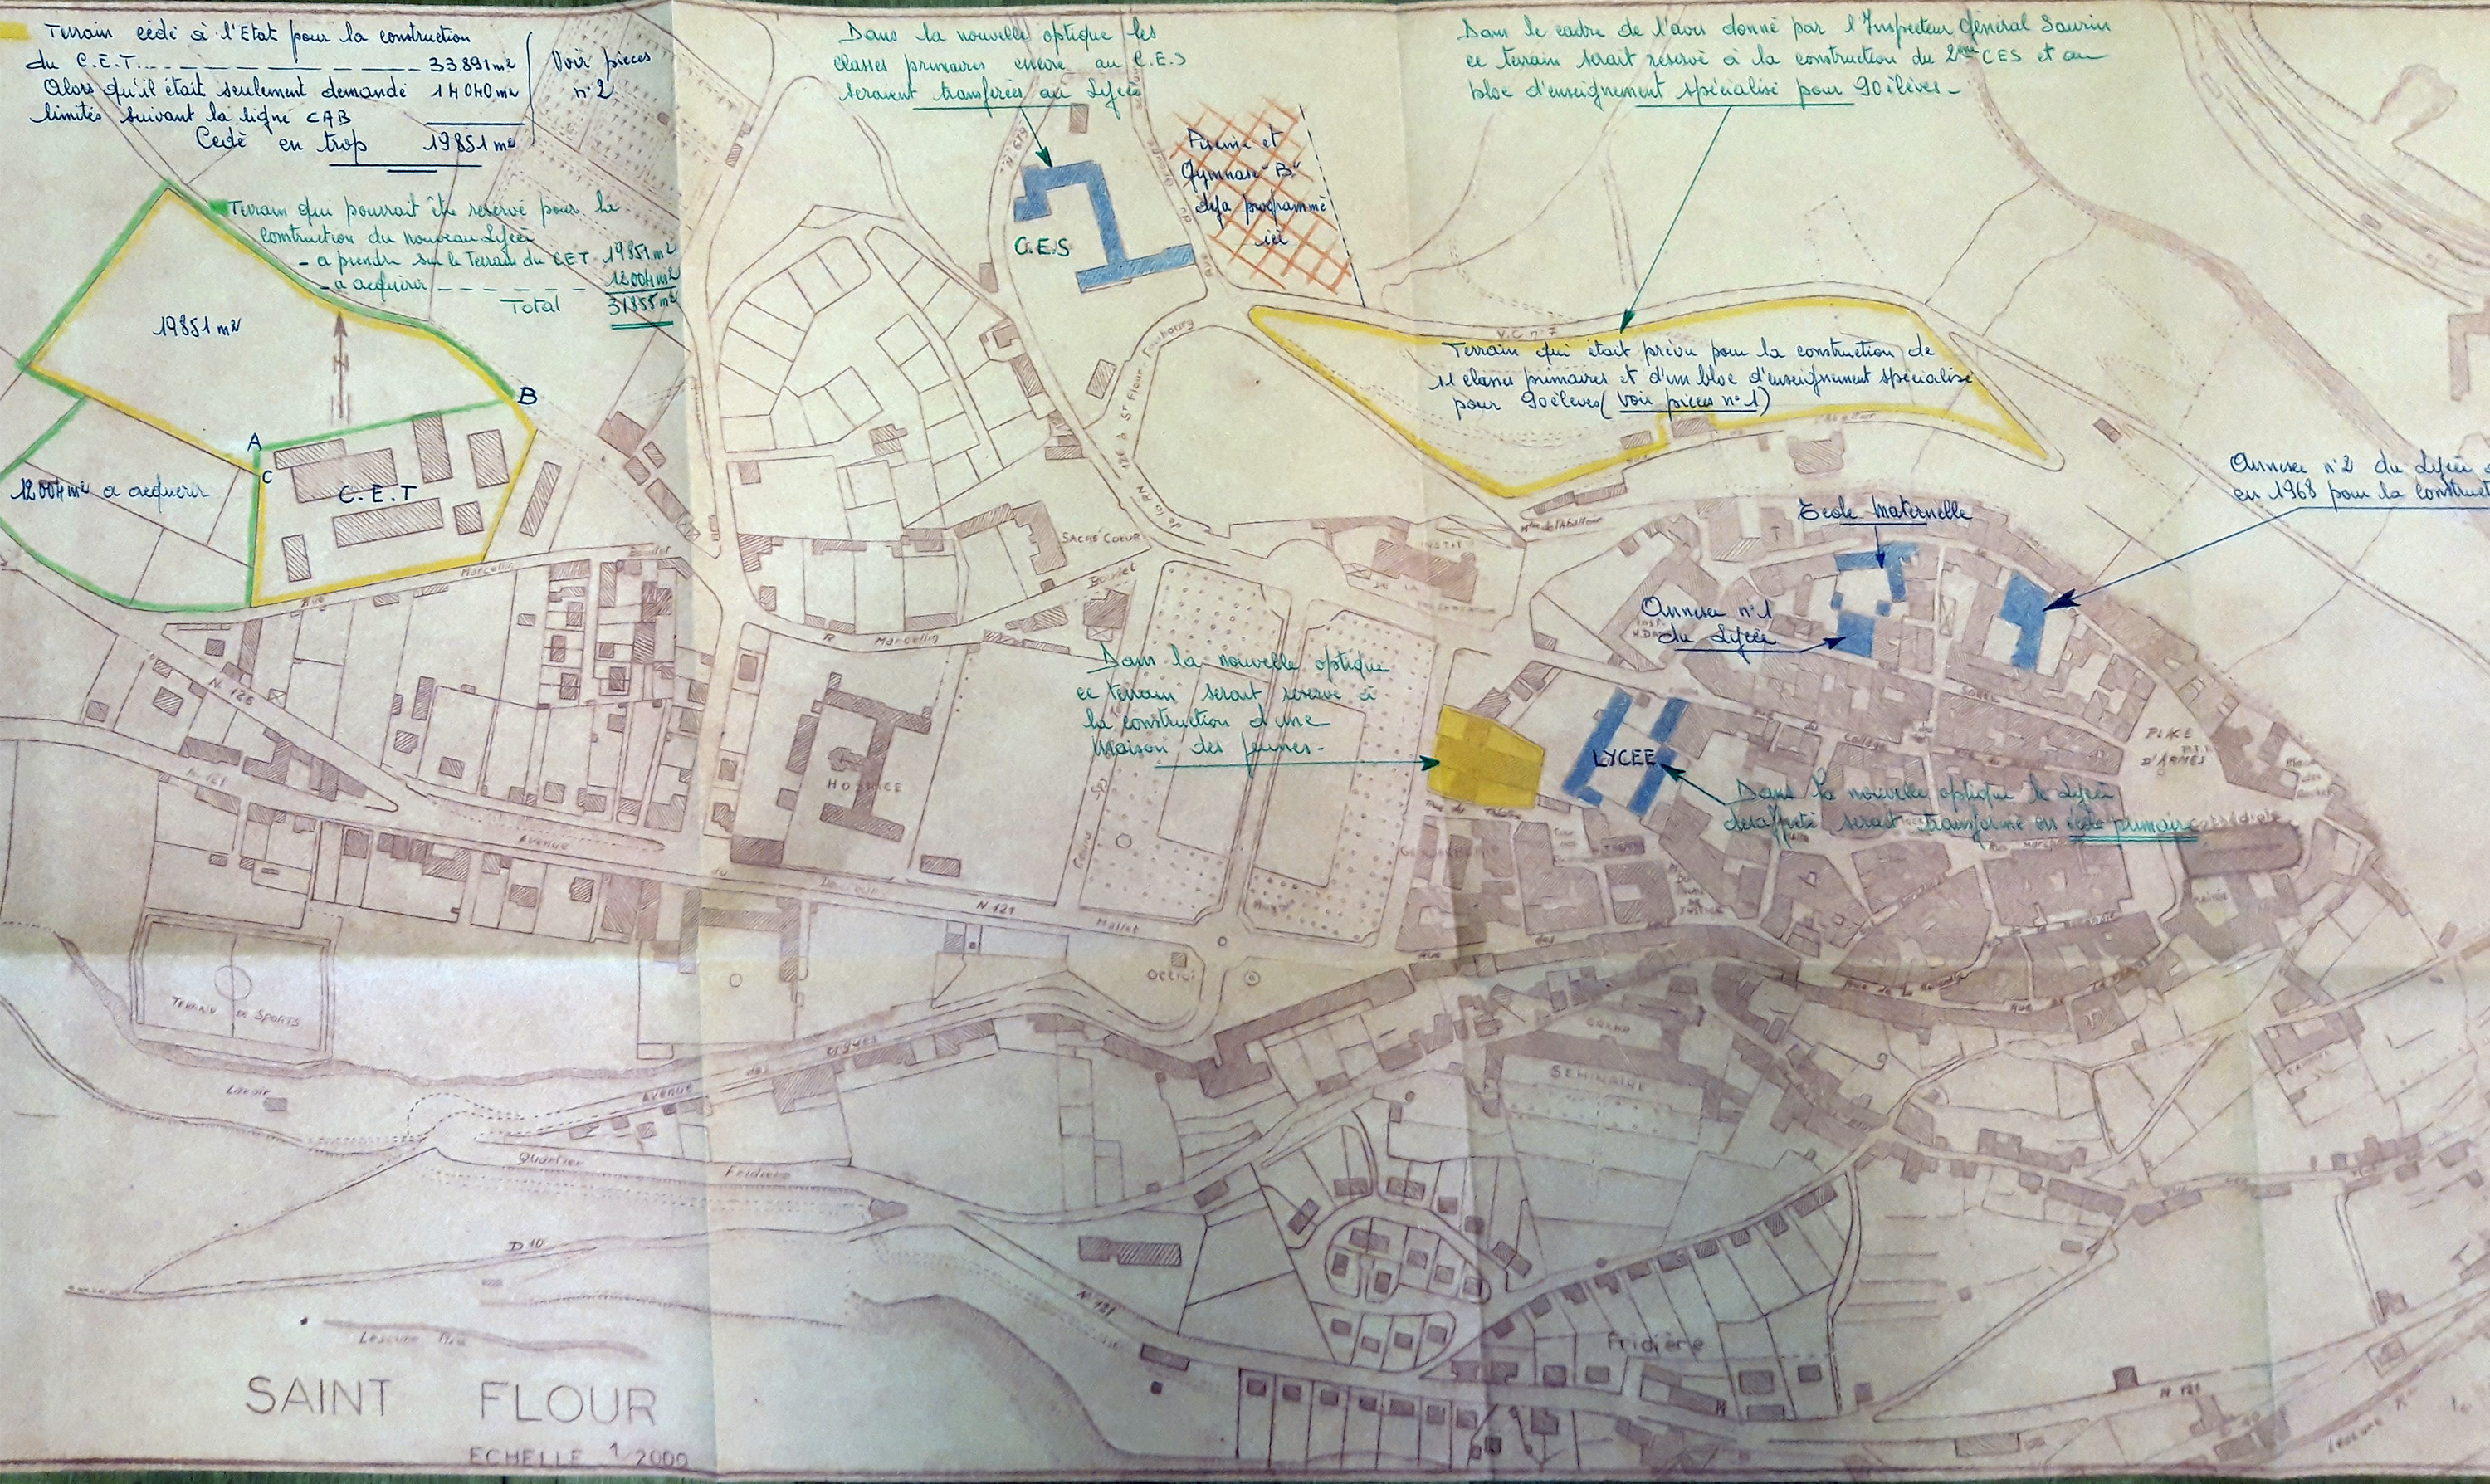 Terrain cédé à l'Etat pour la construction
du C.E.T. _ _ _ _ _ _ _ 33.891 m2
Alors qu'il était seulement demandé 14040 m2
limités suivant la ligne CAB
Cédé en trop 19851 m2
Voir pièces
n°2
Terrain qui pourrait être réservé pour la
construction du nouveau Lycée
- a prendre sur le Terrain du CET 19851 m2
- a acquérir _ _ _ _ _ _ 12004 m2
Total 31855 m2
Dans la nouvelle optique les
classes primaires encore au C.E.S
seraient transférées au Lycée
Dans le cadre de l'avis donné par l'Inspecteur Général Saurin
ce terrain serait réservé à la construction du 2ème CES et au
bloc d'enseignement spécialisé pour 90 élèves -
Piscine et
Gymnase "B"
déja programmé
ici
N. 679
C.E.S
19851 m2
N
A
B
C
C.E.T
12004 m2 a acquérir
V.C. n° 7
Terrain qui était prévu pour la construction de
11 classes primaires et d'un bloc d'enseignement spécialisé
pour 90 élèves (Voir pièces n°1)
Annexe n°2 du Lycée
en 1968 pour la construct
Ecole Maternelle
Annexe n°1
du Lycée
SACRÉ COEUR
Rue Marcellin Boudet
R Marcellin Boudet
Dans la nouvelle optique
ce terrain serait réservé à
la construction d'une
Maison des jeunes -
LYCEE
Dans la nouvelle optique le Lycée
désaffecté serait transformé en école primaire
PLACE
D'ARMES
Cathédrale
N. 126
HOSPICE
Avenue du Docteur Mallet
N. 121
Cours
Octroi
TERRAIN DE SPORTS
Lavoir
Avenue des Orgues
GRAND
SEMINAIRE
Quartier Fridière
D 10
N 121
Fridière
N. 121
SAINT FLOUR
ECHELLE 1/2000